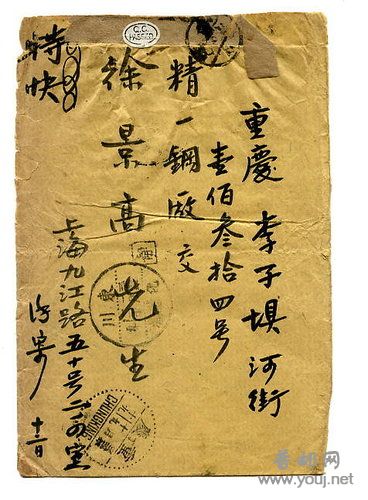 重慶李子垻河街
壹佰叁拾四号
精一鋼廠交
徐景高先生
上海九江路五十号室
特快
C.C.
PASSED
CHUNGKING
www.youj.net